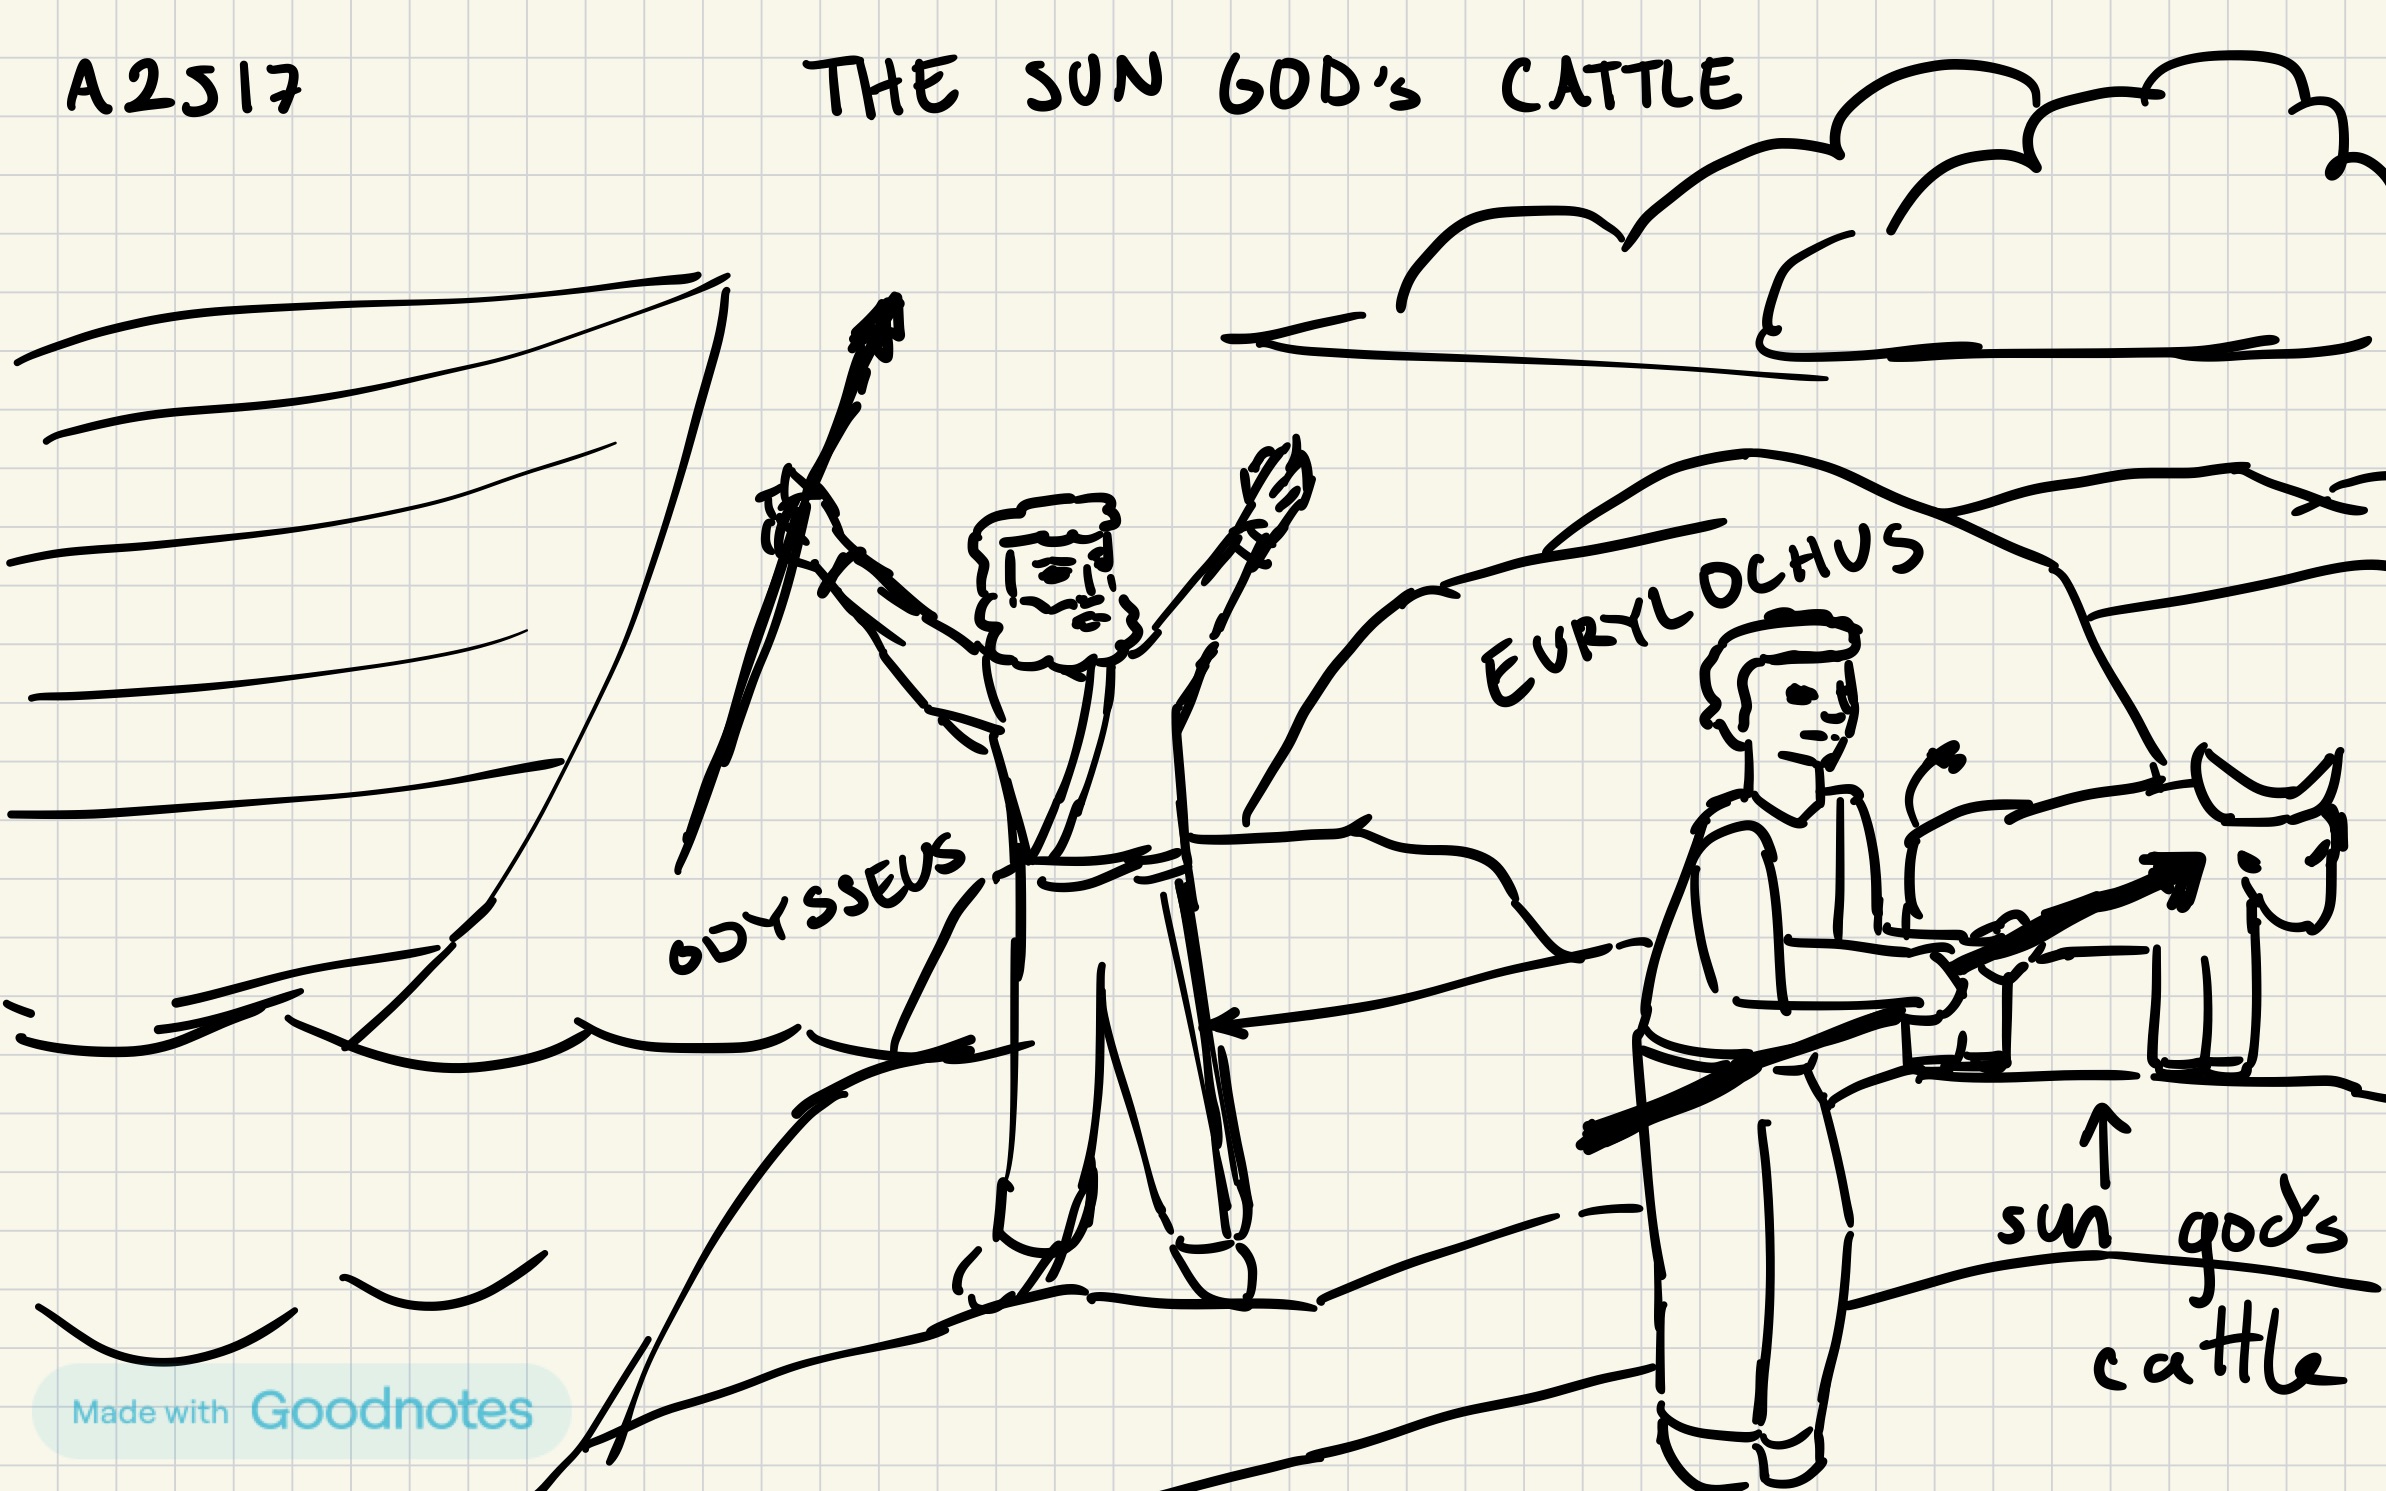 A2517
THE SUN GOD's CATTLE
EURYLOCHUS
ODYSSEUS
sun god's
cattle
Made with Goodnotes